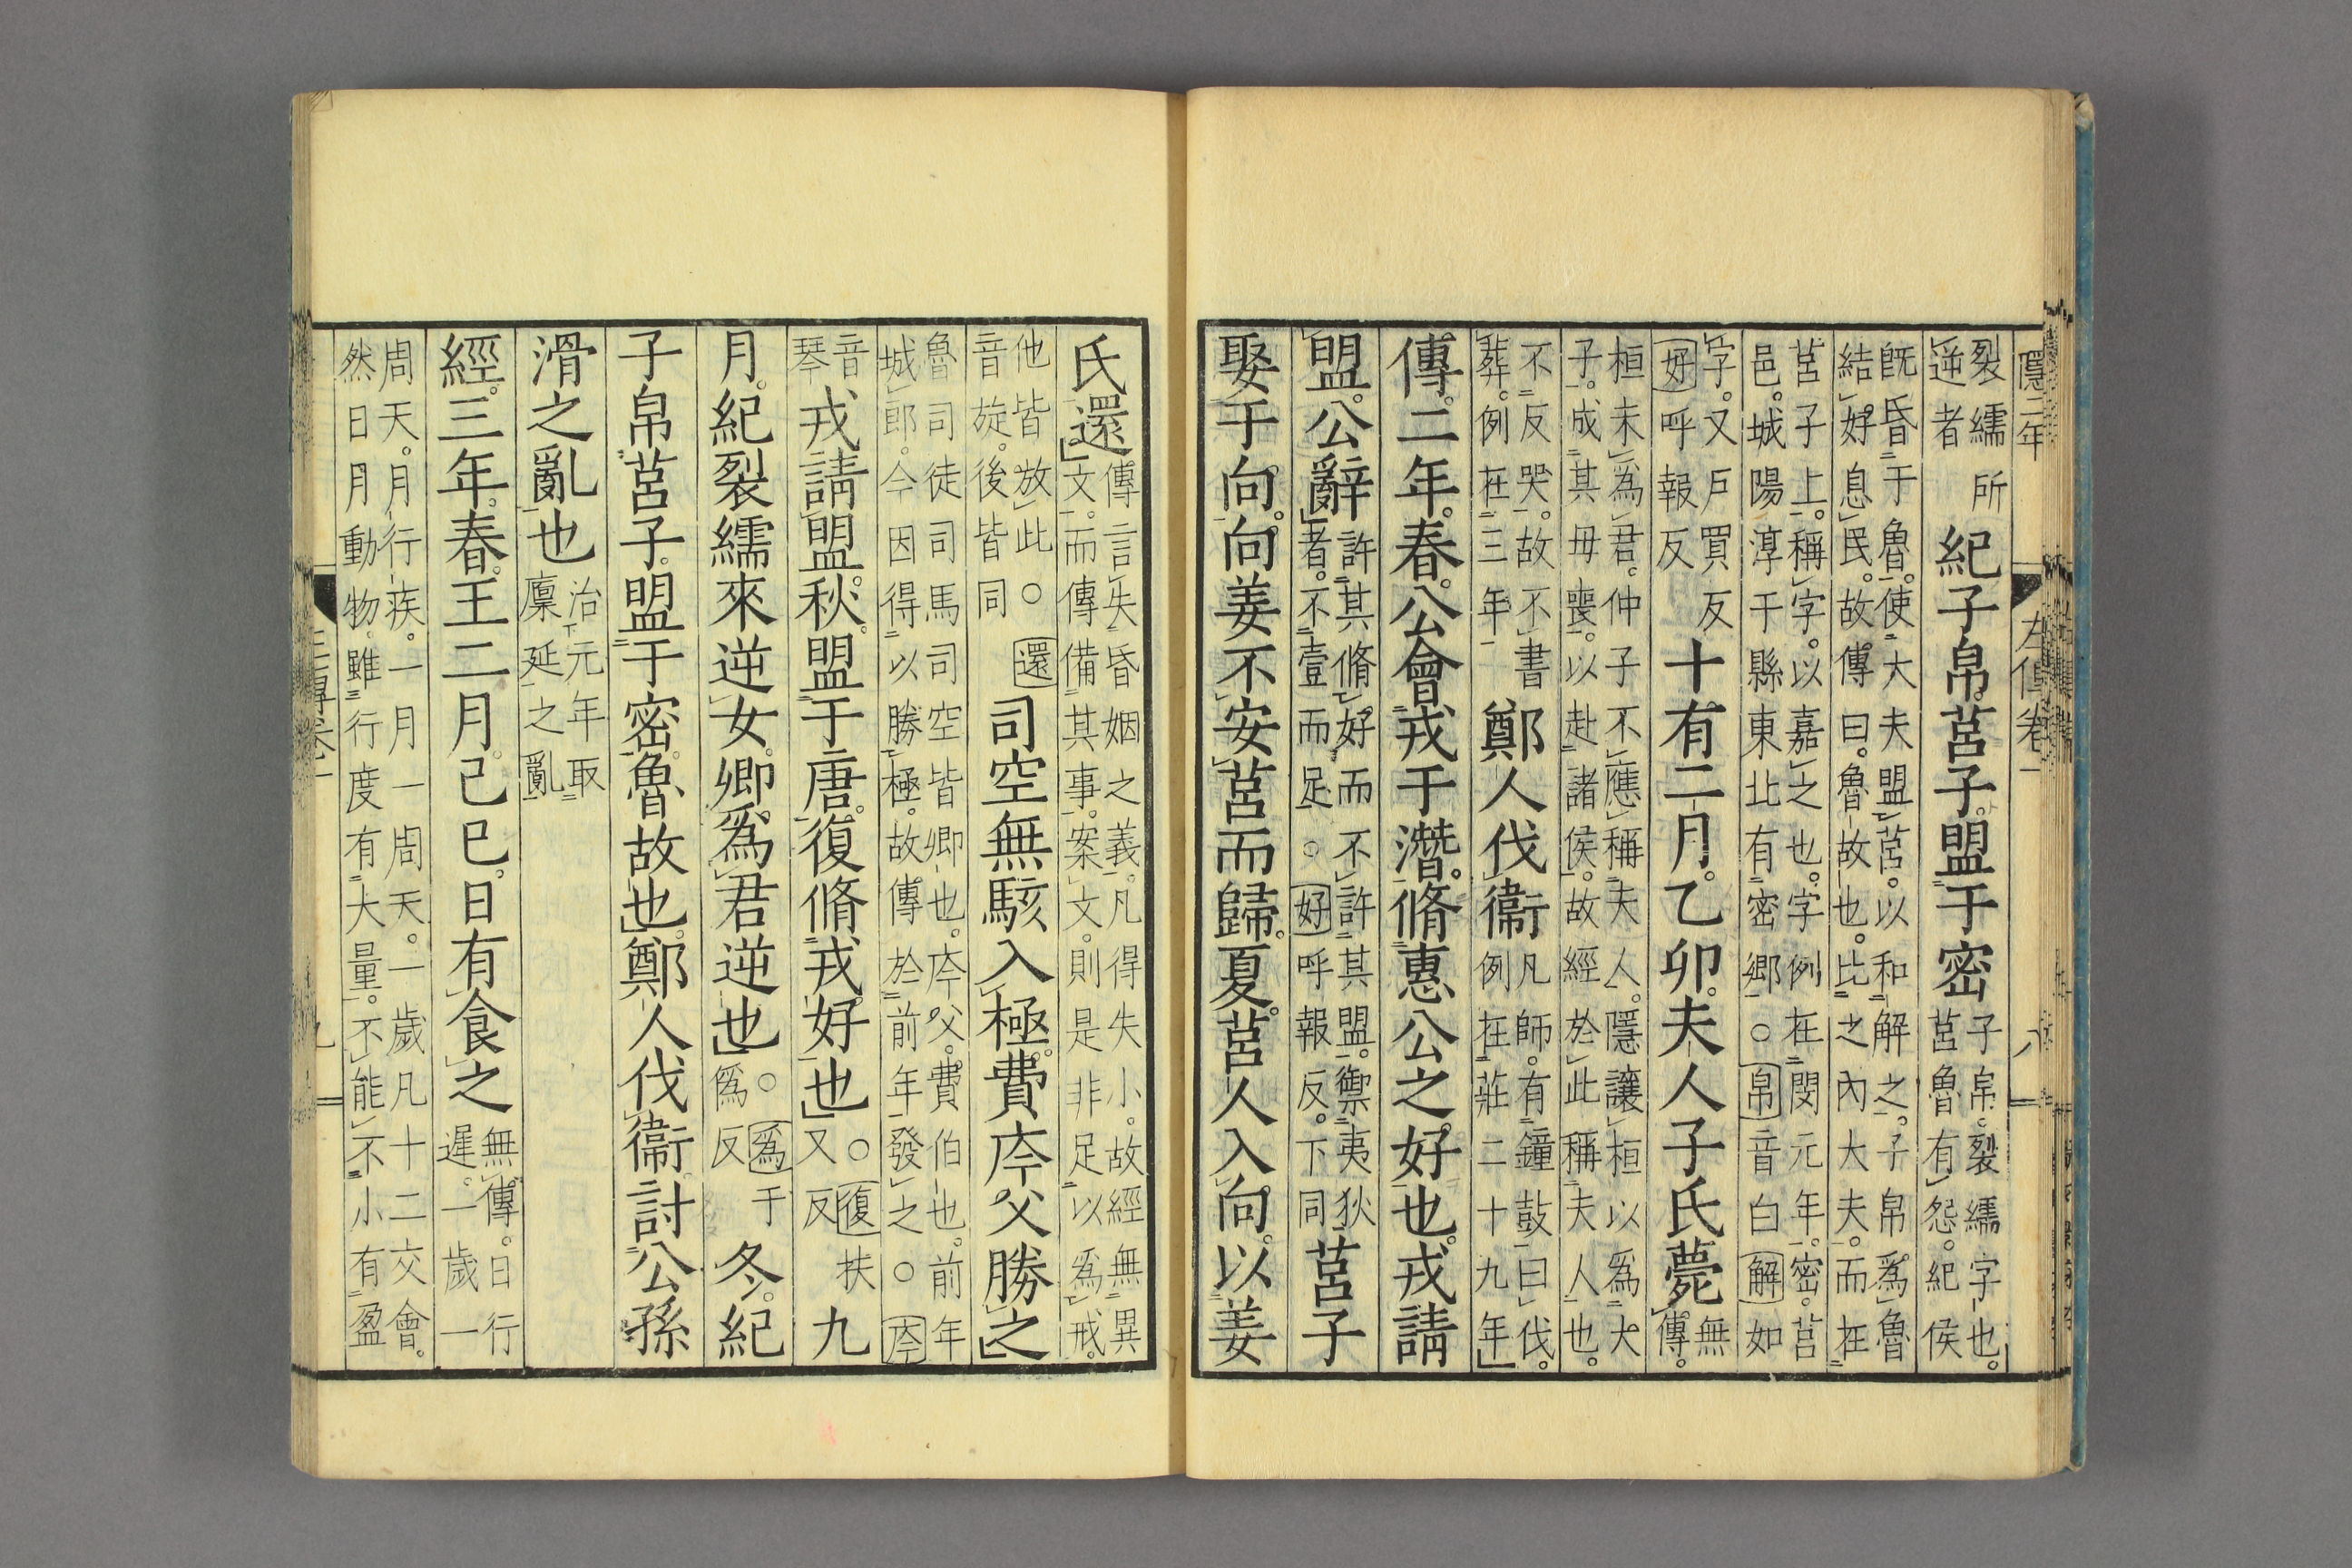 隱二年
左傳卷一
八
裂繻所
逆者
紀子帛莒子盟于密
子帛裂繻字也
莒魯有怨紀侯
既昏于魯使大夫盟莒以和解之子帛為魯
結好息民故傳曰魯故也比之內大夫而在
莒子上稱字以嘉之也字例在閔元年密莒
邑城陽淳于縣東北有密鄉○帛音白解如
字又戶買反
好呼報反
十有二月乙卯夫人子氏薨
無
傳
桓未為君仲子不應稱夫人隱讓桓以為大
子成其母喪以赴諸侯故經於此稱夫人也
不反哭故不書
葬例在三年
鄭人伐衞
凡師有鐘鼓曰伐
例在莊二十九年
傳二年春公會戎于潛脩惠公之好也戎請
盟公辭
許其脩好而不許其盟禦夷狄
者不壹而足○好呼報反下同
莒子
娶于向向姜不安莒而歸夏莒人入向以姜
氏還
傳言失昏姻之義凡得失小故經無異
文而傳備其事案文則是非足以為戒
他皆放此○還
音旋後皆同
司空無駭入極費庈父勝之
魯司徒司馬司空皆卿也庈父費伯也前年
城郎今因得以勝極故傳於前年發之○庈
音
琴
戎請盟秋盟于唐復脩戎好也
○復扶
又反
九
月紀裂繻來逆女卿爲君逆也
○爲于
僞反
冬紀
子帛莒子盟于密魯故也鄭人伐衞討公孫
滑之亂也
治元年取
廩延之亂
經三年春王二月己巳日有食之
無傳日行
遲一歲一
周天月行疾一月一周天一歲凡十二交會
然日月動物雖行度有大量不能不小有盈